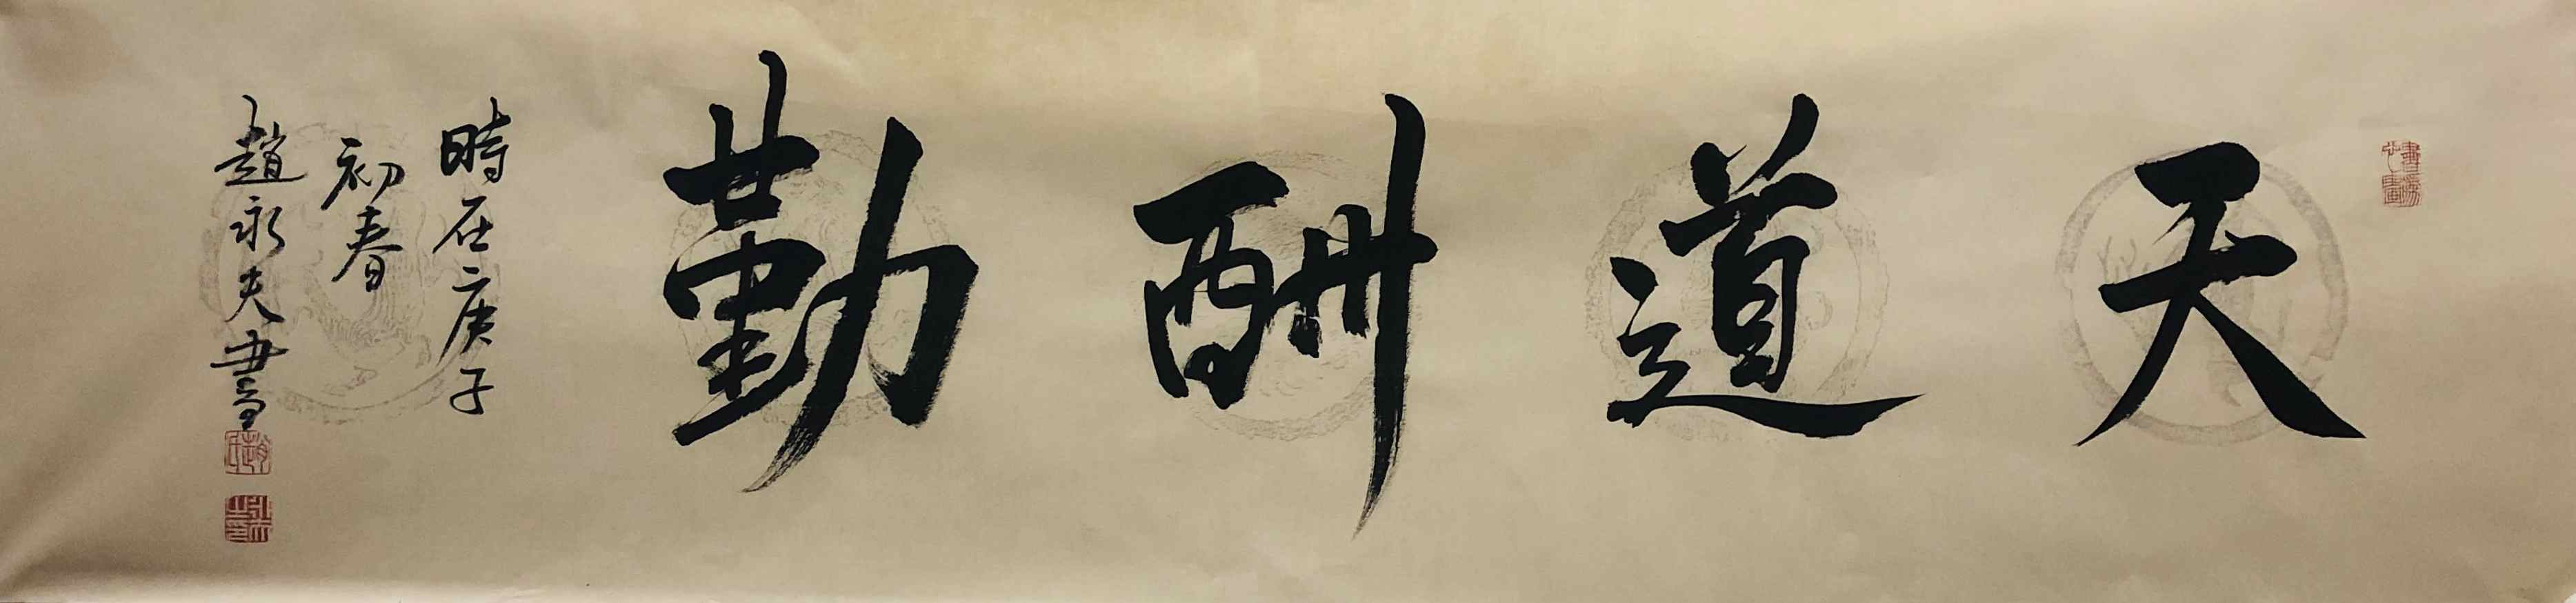 天道酬勤
時在庚子
初春
趙永夫書